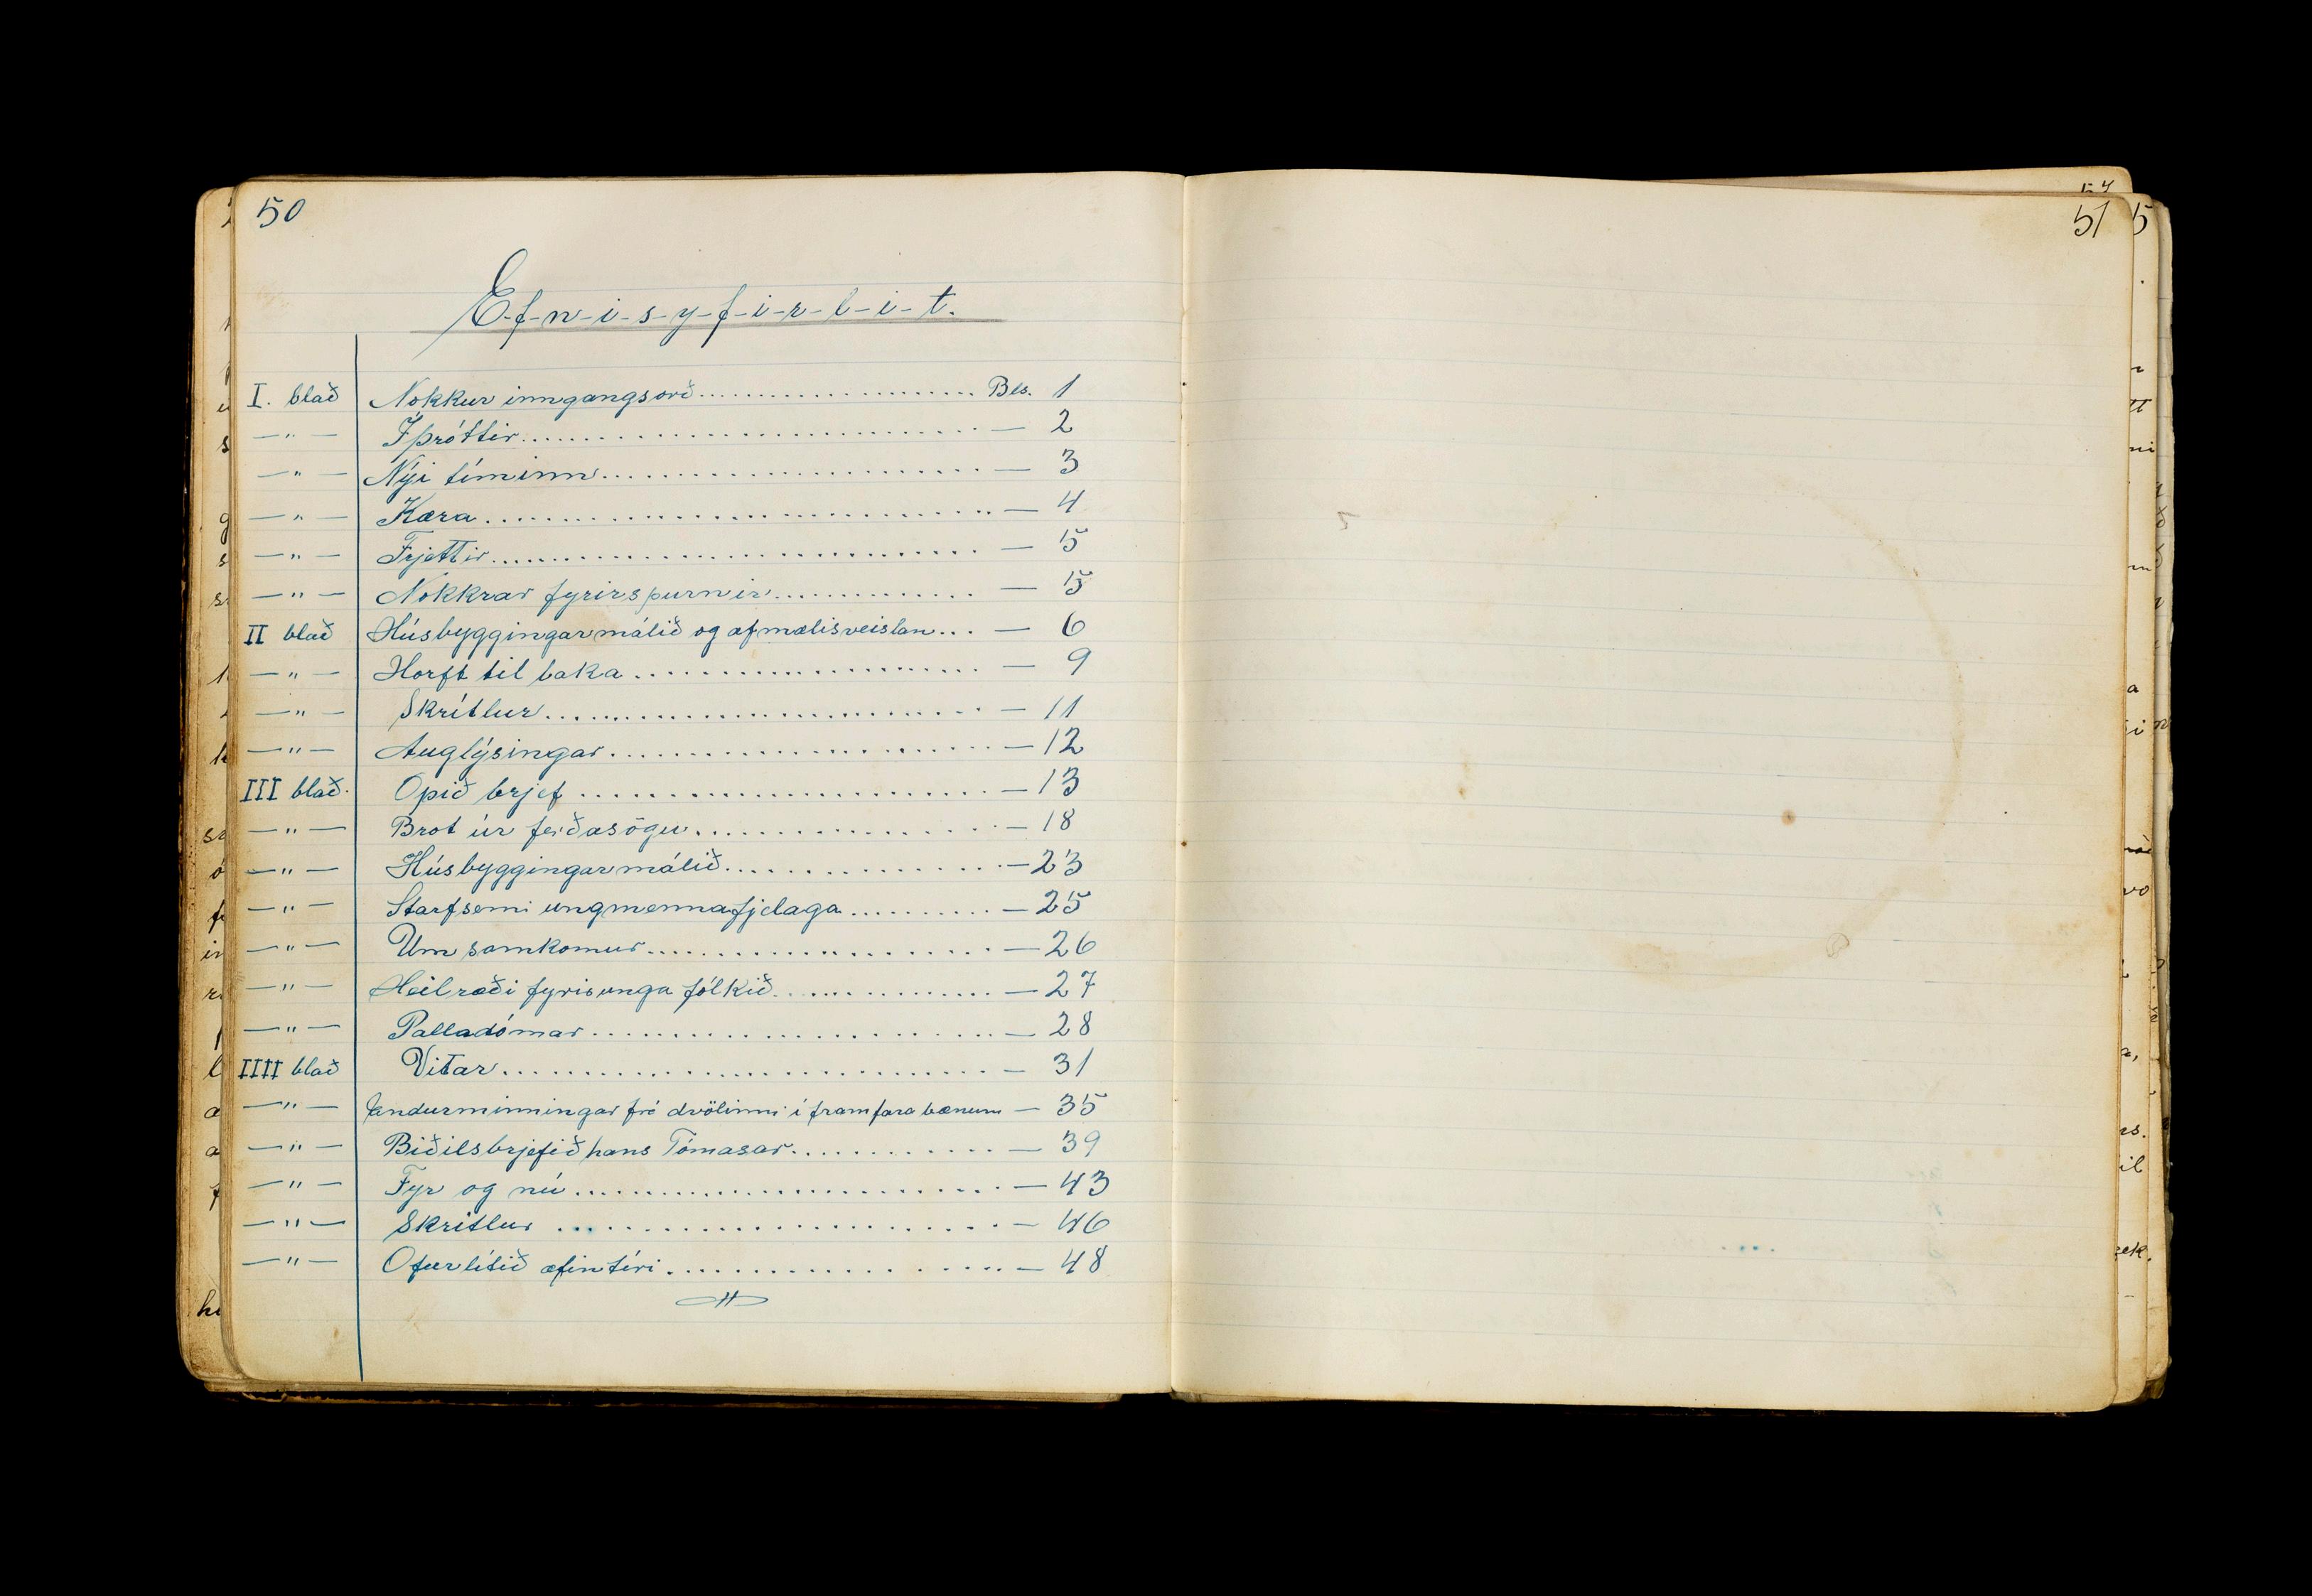 50
E-f-n-i-s-y-f-i-r-l-i-t.
I. blað Nokkur inngangsorð.................... Bls. 1
—"— Íþróttir.............................. — 2
—"— Nýi tíminn........................ — 3
—"— Kæra.............................. — 4
—"— Frjettir............................. — 5
—"— Nokkrar fyrirspurnir............. — 5
II blað Húsbyggingarmálið og afmælisveislan... — 6
—"— Horft til baka..................... — 9
—"— Skrítlur........................... — 11
—"— Auglýsingar....................... — 12
III blað. Opið brjef........................ — 13
—"— Brot úr ferðasögu.................. — 18
—"— Húsbyggingarmálið................ — 23
—"— Starfsemi ungmennafjelaga.......... — 25
—"— Um samkomur.................... — 26
—"— Heilræði fyrir unga fólkið............... — 27
—"— Palladómar........................ — 28
IIII blað Vitar............................. — 31
—"— Endurminningar frá dvölinni í framfara bænum — 35
—"— Biðilsbrjefið hans Tómasar............ — 39
—"— Fyr og nú......................... — 43
—"— Skrítlur .......................... — 46
—"— Ofurlítið æfintíri..................... — 48
51